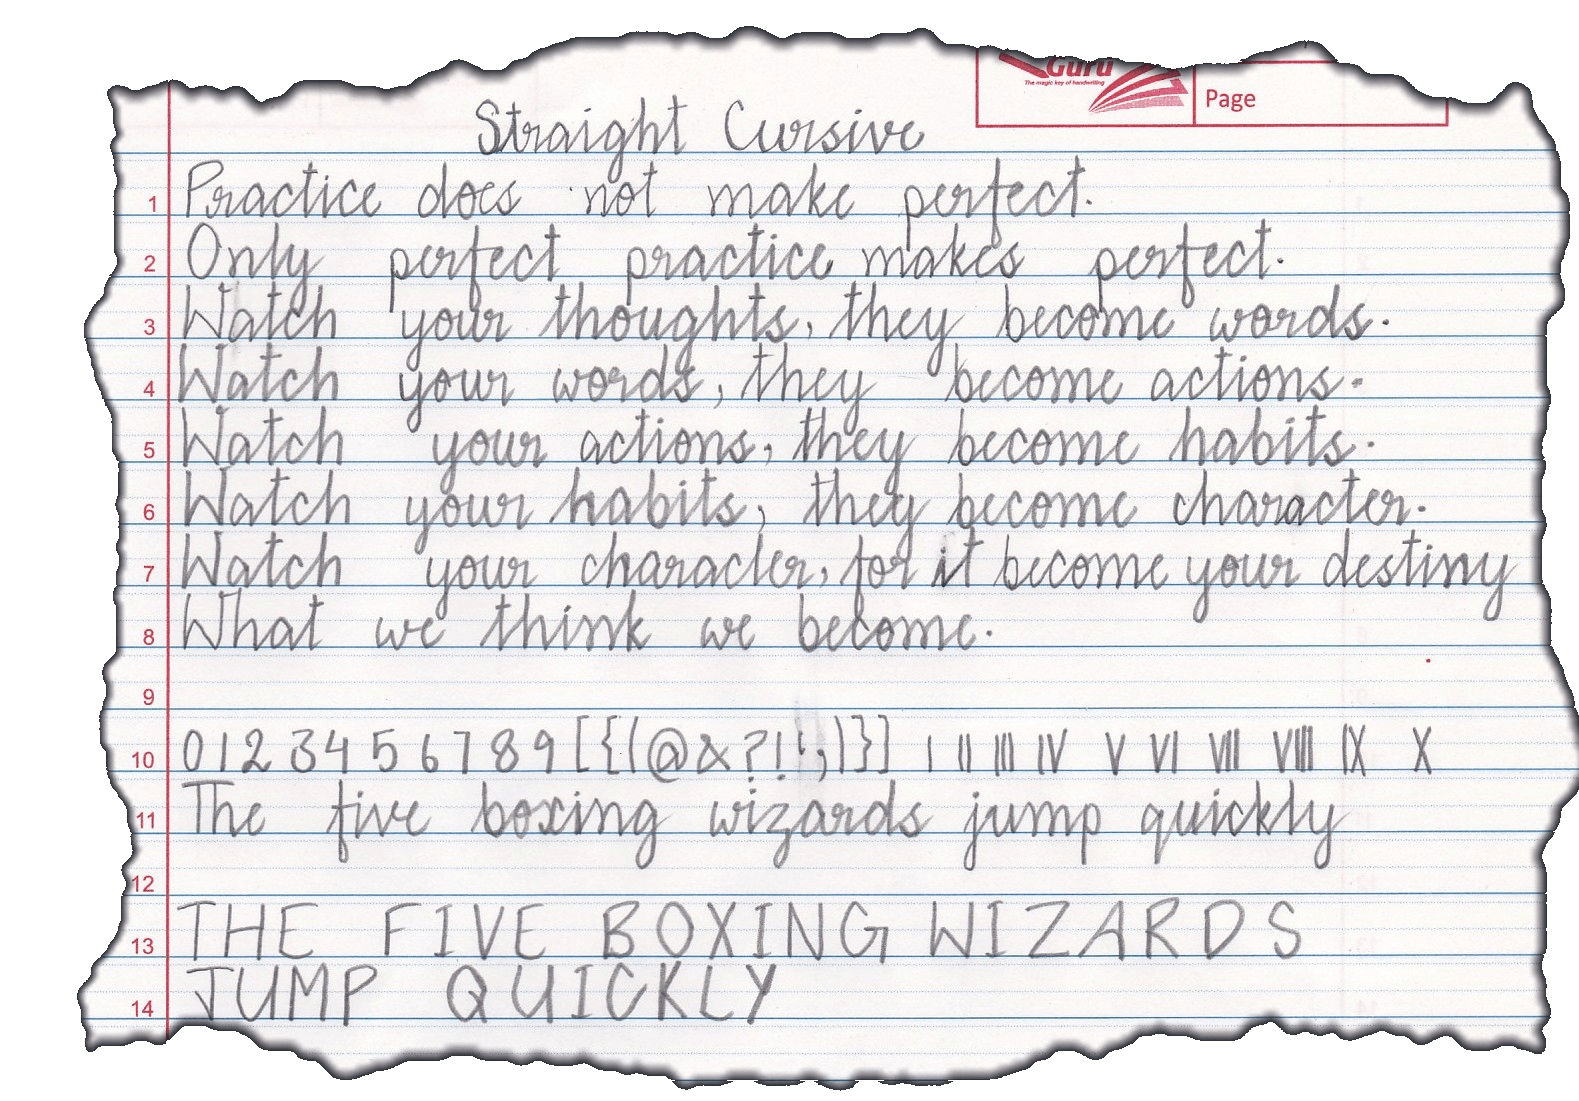 Guru
The magic key of handwriting
Page
Straight Cursive
1 Practice does not make perfect.
2 Only perfect practice makes perfect.
3 Watch your thoughts, they become words.
4 Watch your words, they become actions.
5 Watch your actions, they become habits.
6 Watch your habits, they become character.
7 Watch your character, for it become your destiny
8 What we think we become.
9
10 0 1 2 3 4 5 6 7 8 9 [{(@&?!';)}] I II III IV V VI VII VIII IX X
11 The five boxing wizards jump quickly
12
13 THE FIVE BOXING WIZARDS
14 JUMP QUICKLY